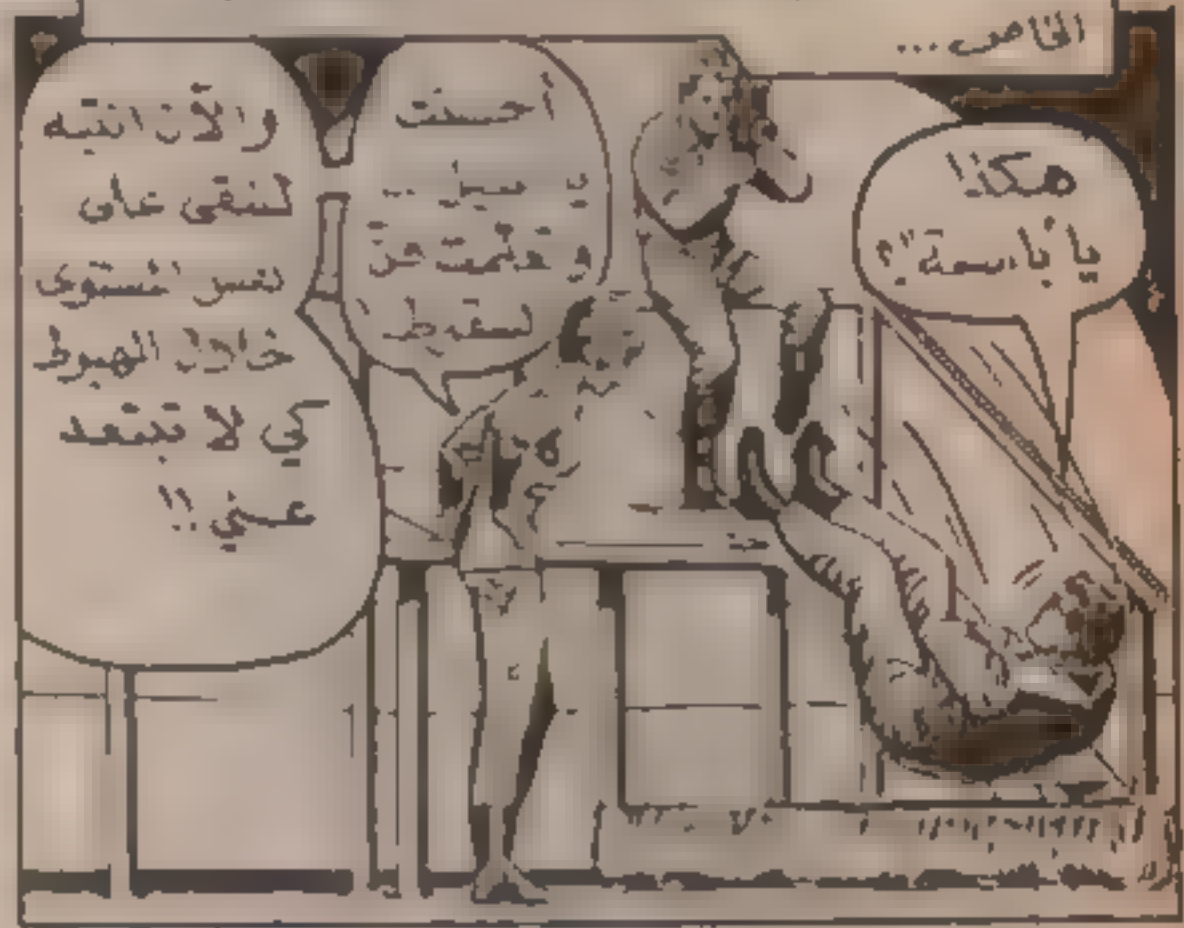 الخاص...
هكذا
يا باسمة"؟
أحسنت
يا نبيل ...
لسقوط
والآن انتبه
لنبقى على
نفس المستوى
خلال الهبوط
كي لا تبتعد
عني !!